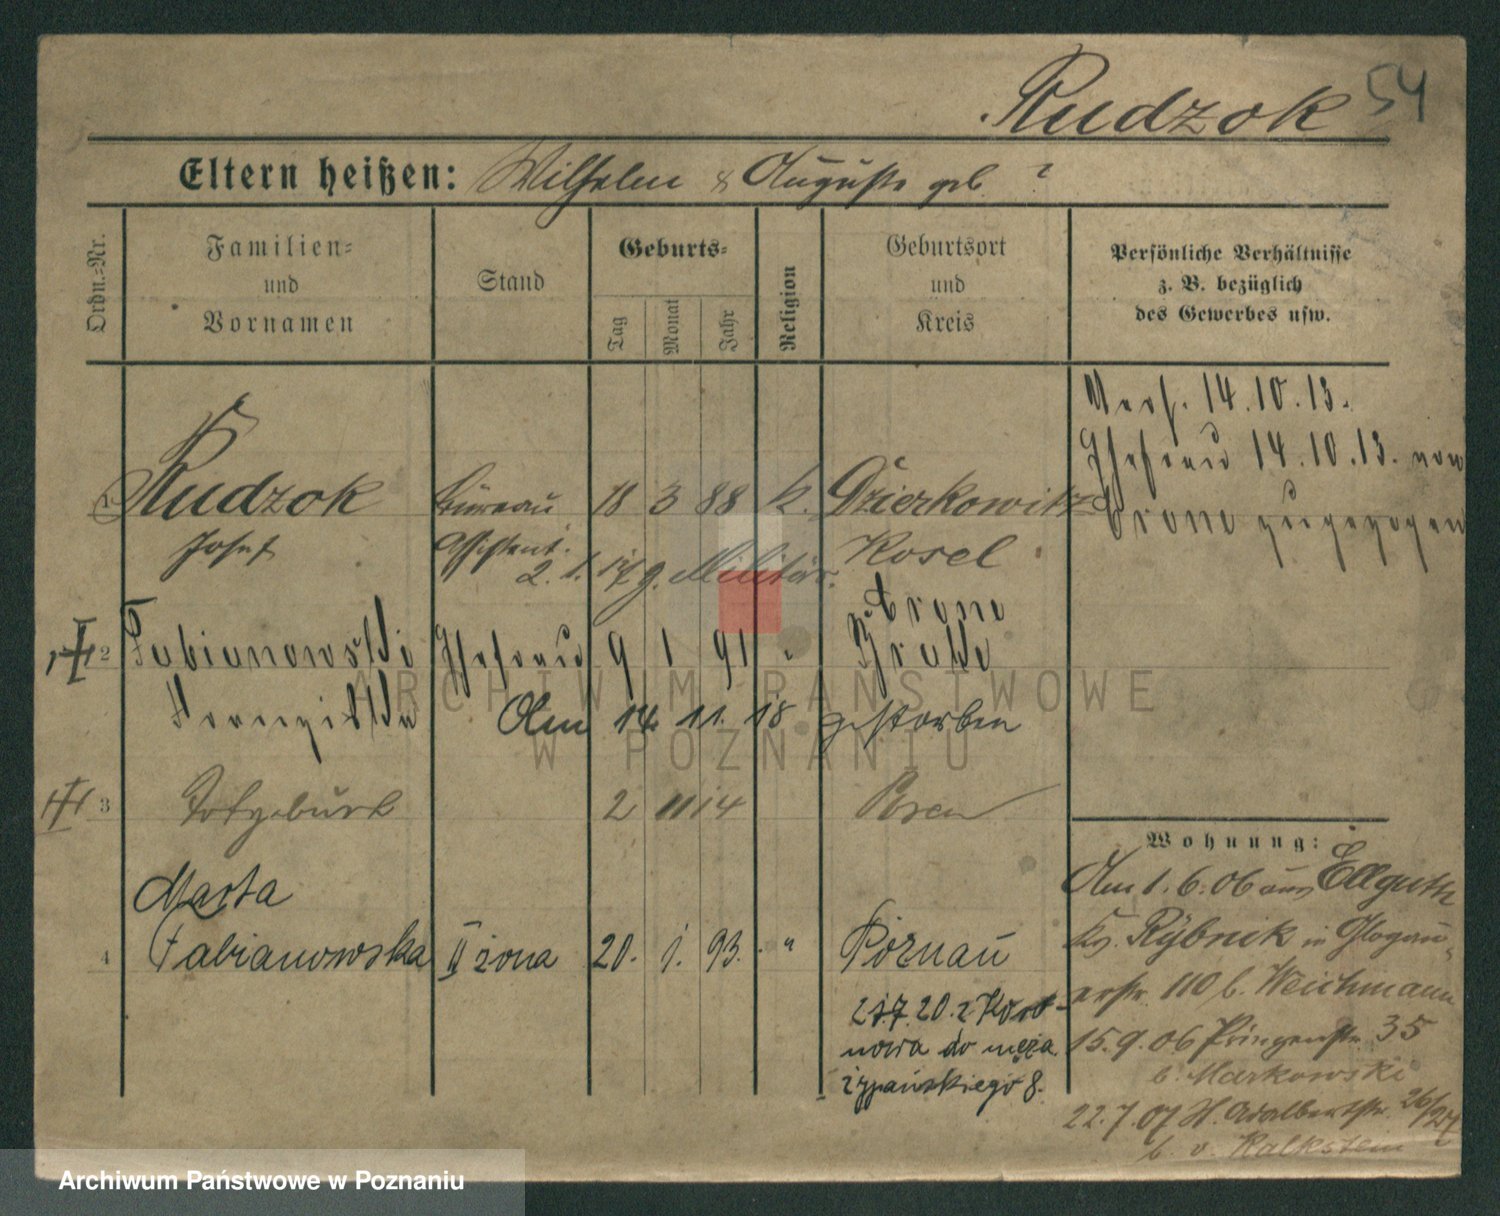 Rudzok 54
Eltern heißen: Wilhelm & Auguste geb. ?
Ordn.=Nr.
Familien=
und
Vornamen
Stand
Geburts=
Tag
Monat
Jahr
Religion
Geburtsort
und
Kreis
Persönliche Verhältnisse
z. B. bezüglich
des Gewerbes usw.
Verh. 14.10.13.
Ehefrau 14.10.13. von
Crone zugezogen
1 Rudzok Bureau 18 3 88 k. Dzierkowitz
Josef Assistent. Kosel
2. 1. 17 z. Militär.
2 Fabianowski Ehefrau 9 1 91 " Crone
Brahe
Am 14. 11. 18 gestorben
3 Totgeburt 2 11 14 Posen
4 Marta
Fabianowska II żona 20. 1. 93. " Poznań
20. z Koro-
nowa do męża
8.
Wohnung:
Am 1.6.06 aus Ellguth
Kr. Rybnik in Glogau-
erstr. 110 b. Weichmann
15.9.06 Prinzenstr. 35
b. Markowski
22.7.07 St. Adalbertstr. 26/27
b. v. Kalkstein
ARCHIWUM PAŃSTWOWE
W POZNANIU
Archiwum Państwowe w Poznaniu